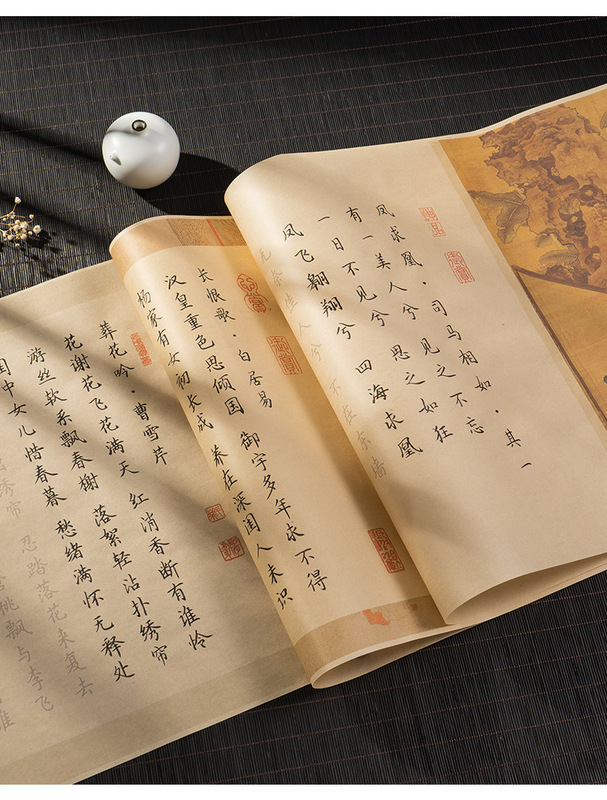 凤求凰·司马相如·其一
有一美人兮 见之不忘
一日不见兮 思之如狂
凤飞翱翔兮 四海求凰
无奈佳人兮 不在东墙
长恨歌·白居易
汉皇重色思倾国 御宇多年求不得
杨家有女初长成 养在深闺人未识
葬花吟·曹雪芹
花谢花飞花满天 红消香断有谁怜
游丝软系飘春榭 落絮轻沾扑绣帘
闺中女儿惜春暮 愁绪满怀无释处
绣帘 忍踏落花来复去
桃飘与李飞
谁